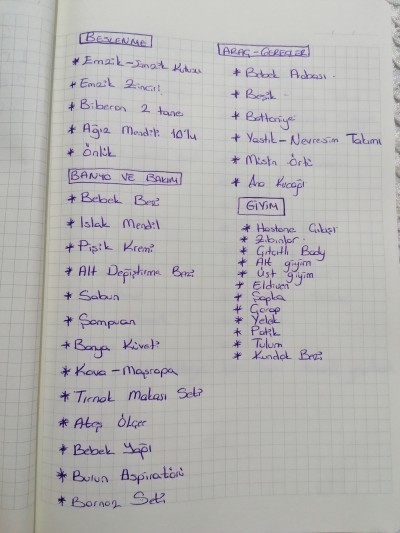 BESLENME
* Emzik-Emzik Kutusu
* Emzik Zinciri
* Biberon 2 tane
* Ağız Mendili 10'lu
* Önlük
BANYO VE BAKIM
* Bebek Bezi
* Islak Mendil
* Pişik Kremi
* Alt Değiştirme Bezi
* Sabun
* Şampuan
* Banyo Küveti
* Kova-Maşrapa
* Tırnak Makası Seti
* Ateş Ölçer
* Bebek Yağı
* Burun Aspiratörü
* Bornoz Seti
ARAÇ-GEREÇLER
* Bebek Arabası
* Beşik
* Battaniye
* Yastık-Nevresim Takımı
* Müslin Örtü
* Ana Kucağı
GİYİM
* Hastane Çıkışı
* Zıbınlar
* Çıtçıtlı Body
* Alt giyim
* Üst giyim
* Eldiven
* Şapka
* Çorap
* Yelek
* Patik
* Tulum
* Kundak Bezi